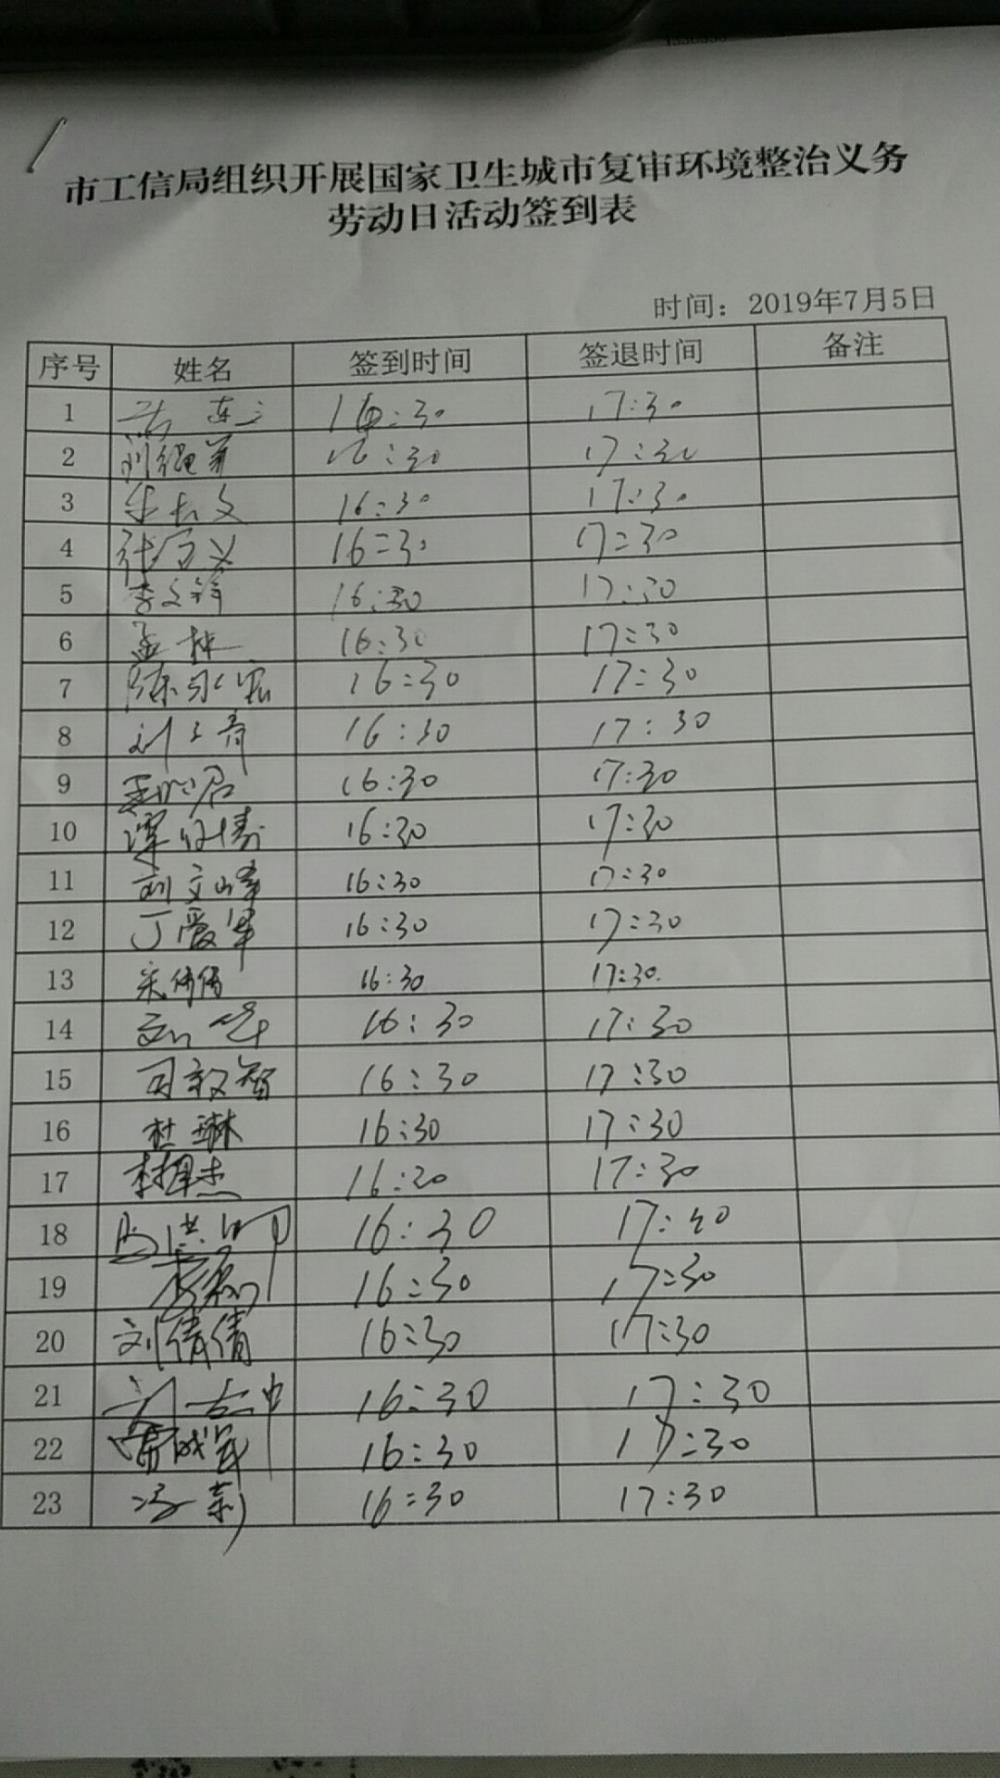 市工信局组织开展国家卫生城市复审环境整治义务
劳动日活动签到表
时间：2019年7月5日
序号 姓名 签到时间 签退时间 备注
1 16:30 17:30
2 16:30 17:30
3 16:30 17:30
4 16:30 17:30
5 16:30 17:30
6 孟林 16:30 17:30
7 16:30 17:30
8 16:30 17:30
9 16:30 17:30
10 16:30 17:30
11 刘文峰 16:30 17:30
12 丁爱军 16:30 17:30
13 宋倩倩 16:30 17:30
14 16:30 17:30
15 司敬智 16:30 17:30
16 杜琳 16:30 17:30
17 16:30 17:30
18 16:30 17:40
19 16:30 17:30
20 刘倩倩 16:30 17:30
21 16:30 17:30
22 16:30 17:30
23 冯莉 16:30 17:30